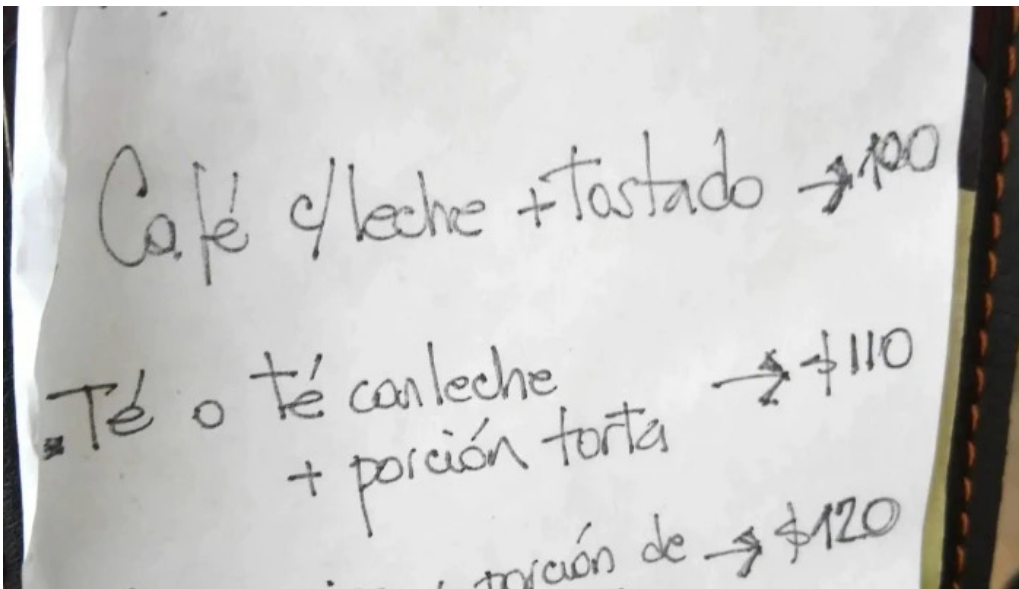 Café c/leche + Tostado → 100
Té o té con leche → $110
+ porción torta
porción de → $120